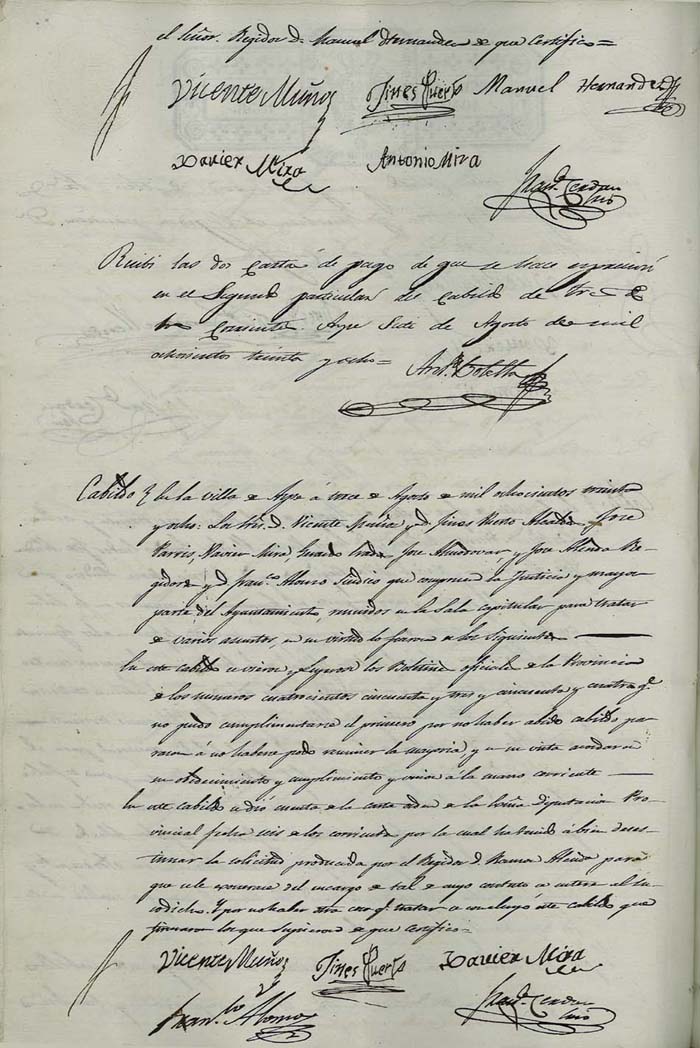 el Señor Regidor D. Manuel Hernandez de que Certifico =
Vicente Muñoz Jines Puerto Manuel Hernandez
Xavier Mira Antonio Mira
Recibi las dos Carta de pago de que se hace espresion
en el Segundo particular del Cabildo de tres
Corriente. Aspe Siete de Agosto de mil
ochosientos treinta y ocho =
Cabildo En la villa de Aspe á trece de Agosto de mil ochocientos treinta
y ocho: Los Sres. D. Vicente Muñoz y D. Jines Puerto Alcaldes, José
Xavier Mira, José Almodovar y José Re-
gidores y D. Franco. Alonso Sindico que componen la Justicia y mayor
parte del Ayuntamiento, reunidos en la Sala capitular para tratar
de varios asuntos, en su virtud lo fueron de los Siguientes
En este cabildo se vieron los Boletines oficiales de la Provincia
de los numeros cuatrocientos cincuenta y tres y cincuenta y cuatro q.e
no pudo cumplimentarse el primero por no haber abido cabildo por
razon á no haberse podido reunir la mayoria y en su vista acordaron
su obedecimiento y cumplimiento y unirse á la mano corriente
En este cabildo se dió cuenta de la carta orden de la Diputacion Pro-
vincial fecha seis de los corrientes por la cual ha tenido á bien deses-
timar la solicitud producida por el Regidor D. para
que se le exonerase del encargo de tal de cuyo contesto se entere al Su-
sodicho. Y por no haber otra cosa q.e tratar se concluyó este cabildo que
firmaron los que Supieron de que certifico =
Vicente Muñoz Jines Puerto Xavier Mira
Fran.co Alonso